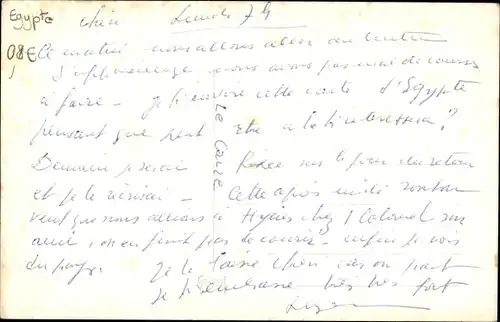 Egypte
08€
chéri Lundi 74
Ce matin nous allons aller au
d'aplomb nous avons pas mal de courses
à faire - je t'envoie cette carte d'Egypte
pensant que peut être cela t'intéressera?
Le Caire
Demain je serai sur le retour
et je te - Cette après midi tonton
veut que nous allions à Hyères chez 1 Colonel son
ami, on en finit pas de courir - enfin je vois
du pays. Je te laisse chéri car on part
je t'embrasse très très fort